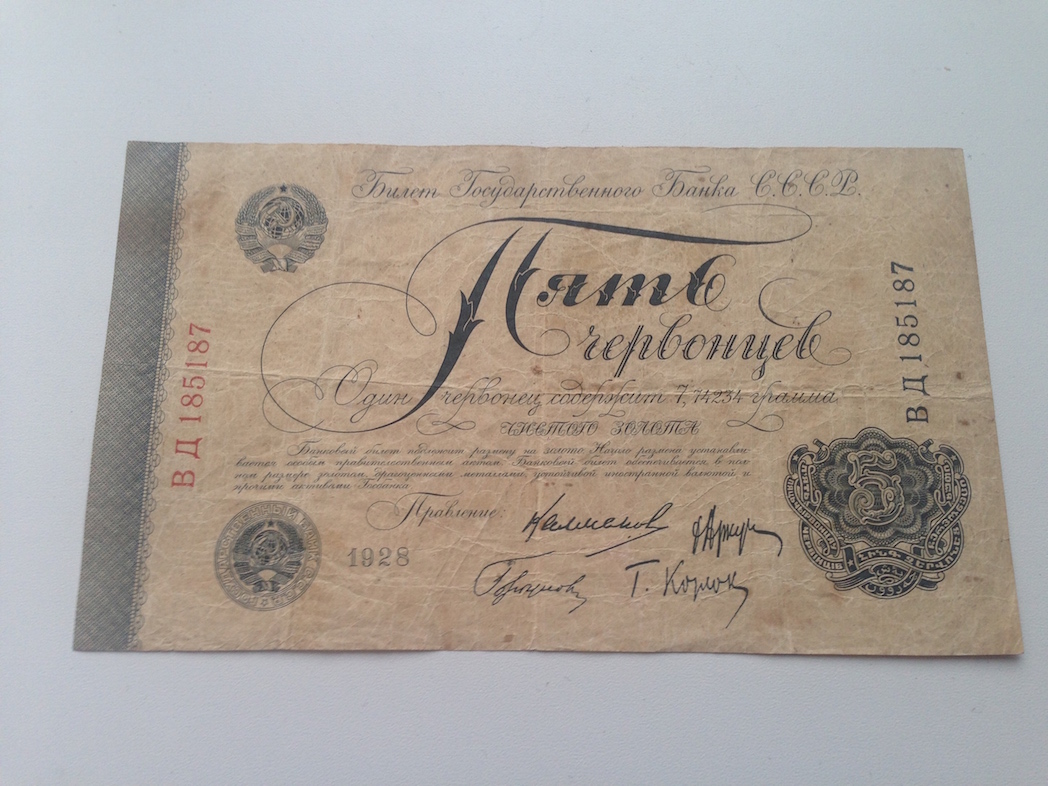 Билет Государственного Банка С.С.С.Р.
Пять
червонцев
Один червонец содержит 7,74234 грамма
чистого золота
Банковый билет подлежит размену на золото. Начало размена устанавли-
вается особым правительственным актом. Банковый билет обеспечивается в пол-
ном размере золотом, драгоценными металлами, устойчивой иностранной валютой и
прочими активами Госбанка
Правление:
1928
Калманов
Г. Корлок
ВД 185187
ВД 185187
5